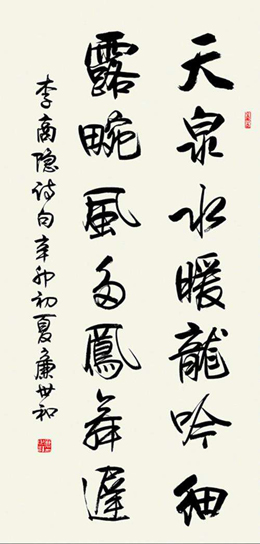 天泉水暖龍吟細
露畹風多鳳舞遲
李商隐诗句辛卯初夏廉世和